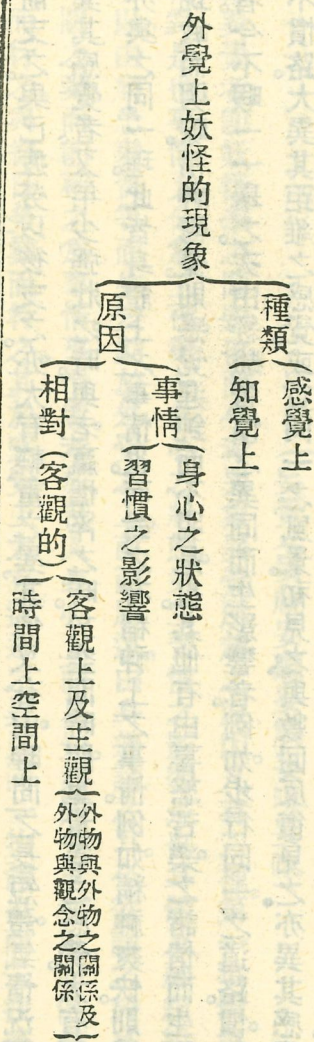 外覺上妖怪的現象
種類
感覺上
知覺上
原因
事情
身心之狀態
習慣之影響
相對（客觀的）
客觀上及主觀
外物與外物之關係及
外物與觀念之關係
時間上空間上